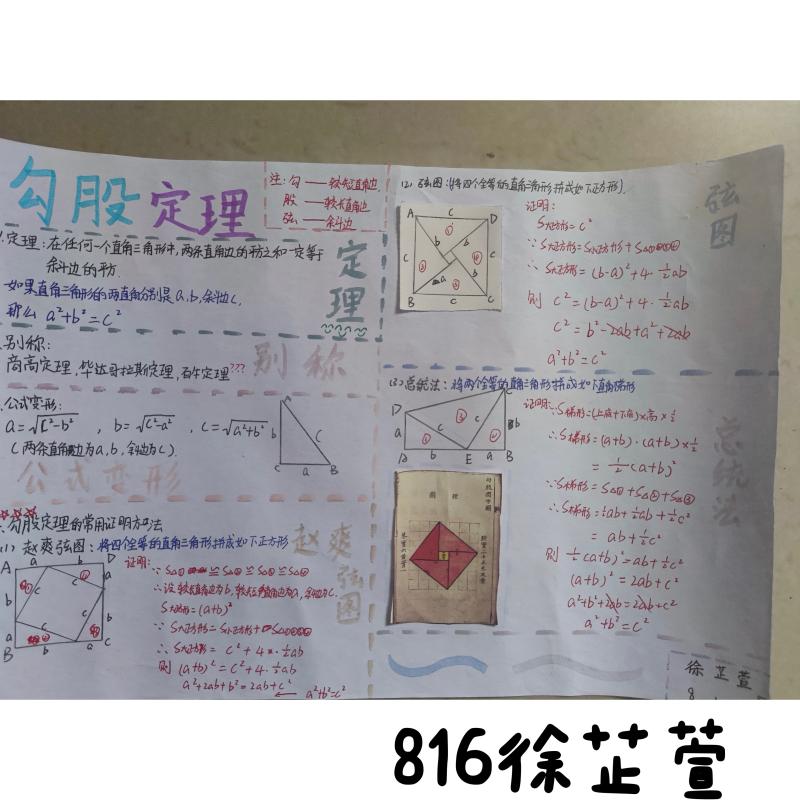 勾股定理
注：勾——较短直角边
股——较长直角边
弦——斜边
1.定理：在任何一个直角三角形中，两条直角边的平方之和一定等于
斜边的平方.
如果直角三角形的两直角分别是a,b,斜边c,
那么 a²+b²=c²
定理
别称：
商高定理，毕达哥拉斯定理，百牛定理???
别称
公式变形：
a=√c²-b² , b=√c²-a² , c=√a²+b²
(两条直角边为a,b,斜边为c).
A
b
c
C a B
公式变形
勾股定理的常用证明方法
(1) 赵爽弦图：将四个全等的直角三角形拼成如下正方形
赵爽弦图
证明：
∵ S△① ≌ S△② ≌ S△③ ≌ S△④
∴设较长直角边为b,较短直角边为a,斜边为c.
S大正方形=(a+b)²
∵ S大正方形=S小正方形+S△①②③④
∴ S大正方形= c²+4×·½ab
则 (a+b)²=c²+4·½ab
a²+2ab+b²=2ab+c²
← a²+b²=c²
(2) 弦图：(将四个全等的直角三角形拼成如下正方形).
弦图
证明：
S大正方形=c²
∵ S大正方形=S小正方形+S△①②③④
∴ S大正方形=(b-a)²+4·½ab
则 c²=(b-a)²+4·½ab
c²=b²-2ab+a²+2ab
a²+b²=c²
(3) 总统法：将两个全等的直角三角形拼成如下直角梯形
总统法
证明：
∵S梯形=(上底+下底)×高×½
∴S梯形=(a+b)·(a+b)×½
=½(a+b)²
∵S梯形=S△①+S△②+S△③
∴S梯形=½ab+½ab+½c²
=ab+½c²
则 ½(a+b)²=ab+½c²
(a+b)²=2ab+c²
a²+b²+2ab=2ab+c²
a²+b²=c²
徐芷萱
816徐芷萱